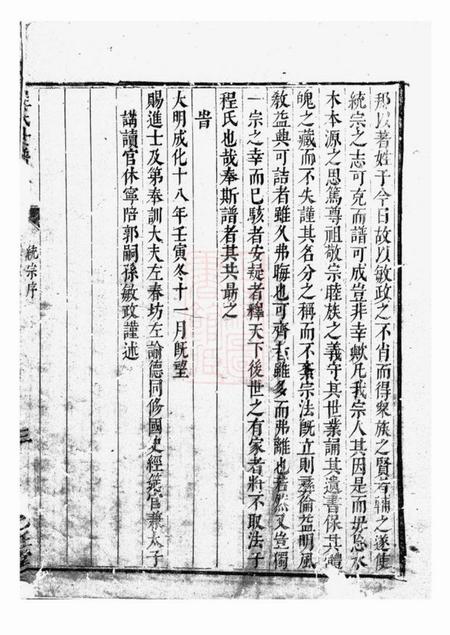 那以著姓于今日故以敏政之不肖而得衆族之賢者輔之遂使
統宗之志可克而譜可成豈非幸歟凡我宗人其因是而毋忽水
木本源之思篤尊祖敬宗睦族之義守其世業誦其遺書保其體
魄之藏而不失謹其名分之稱而不紊宗法旣立則彞倫益明風
敎益興可詰者雖久弗晦也可齊者雖多而弗離也若然又豈獨
一宗之幸而已駭者安疑者釋天下後世之有家者將不取法于
程氏也哉奉斯譜者其共勗之
旹
大明成化十八年壬寅冬十一月旣望
賜進士及第奉訓大夫左春坊左諭德同修國史經筵官兼太子
講讀官休寧陪郭嗣孫敏政謹述
統宗序
三